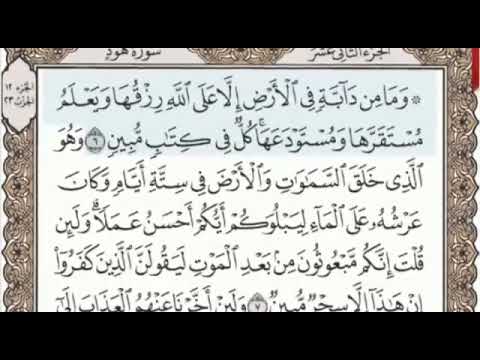 الجزء الثاني عشر
سورة هود
الجزء ١٢
الحزب ٢٣
۞ وَمَا مِن دَآبَّةٍ فِي ٱلْأَرْضِ إِلَّا عَلَى ٱللَّهِ رِزْقُهَا وَيَعْلَمُ
مُسْتَقَرَّهَا وَمُسْتَوْدَعَهَاۚ كُلٌّ فِي كِتَٰبٍ مُّبِينٍ ٦ وَهُوَ
ٱلَّذِي خَلَقَ ٱلسَّمَٰوَٰتِ وَٱلْأَرْضَ فِي سِتَّةِ أَيَّامٍ وَكَانَ
عَرْشُهُۥ عَلَى ٱلْمَآءِ لِيَبْلُوَكُمْ أَيُّكُمْ أَحْسَنُ عَمَلًاۗ وَلَئِن
قُلْتَ إِنَّكُم مَّبْعُوثُونَ مِنۢ بَعْدِ ٱلْمَوْتِ لَيَقُولَنَّ ٱلَّذِينَ كَفَرُوٓا۟
إِنْ هَٰذَآ إِلَّا سِحْرٌ مُّبِينٌ ٧ وَلَئِنْ أَخَّرْنَا عَنْهُمُ ٱلْعَذَابَ إِلَىٰٓ